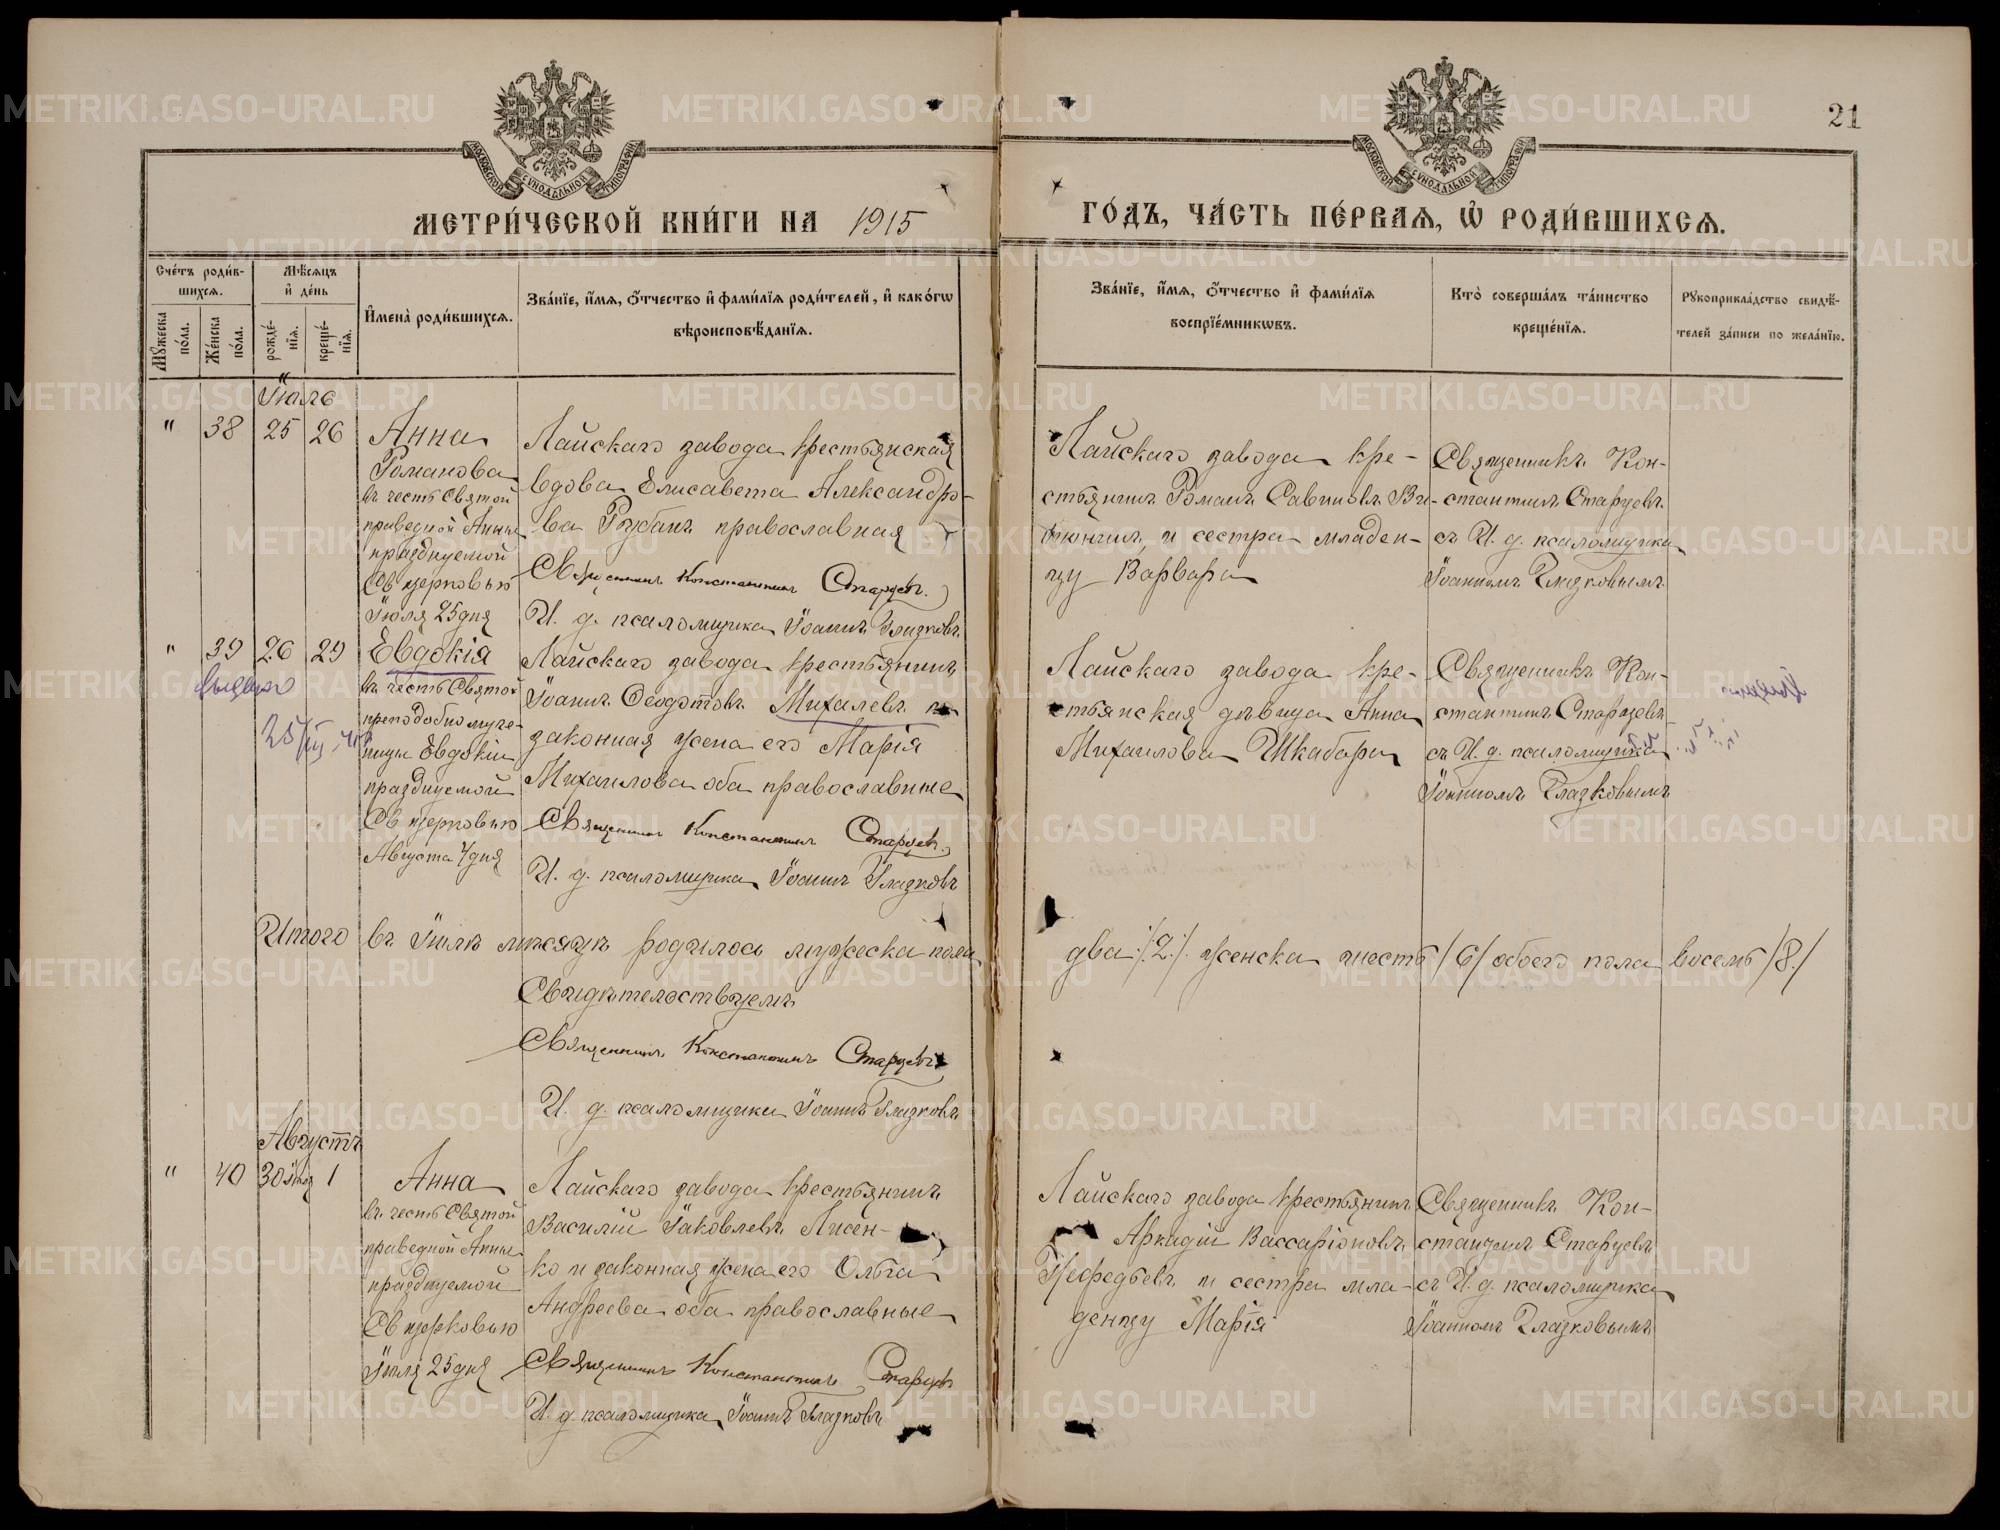 МЕТРИ́ЧЕСКОЙ КНИ́ГИ НА 1915
ГО́ДЪ, ЧА́СТЬ ПЕ́РВАЯ, Ѽ РОДИ́ВШИХСЯ.
21
МОСКОВСКОЙ СѴНОДАЛЬНОЙ ТИПОГРАФІИ
МОСКОВСКОЙ СѴНОДАЛЬНОЙ ТИПОГРАФІИ
Сче́тъ роди́в-
шихся.
Мꙋжеска по́ла.
Же́нска по́ла.
Мѣ́сяцъ
и҆ де́нь
рожде́-
нїѧ.
креще́-
нїѧ.
И҆мена̀ роди́вшихся.
Зва́нїе, и҆́мѧ, ѻ҆́тчество и҆ фамі́лїѧ роди́телей, и҆ како́гѡ
вѣроисповѣ́данїѧ.
Зва́нїе, и҆́мѧ, ѻ҆́тчество и҆ фамі́лїѧ
воспрїе́мникѡвъ.
Кто̀ соверша́лъ та́инство
креще́нїѧ.
Рꙋкоприкла́дство свидѣ́-
телей за́писи по жела́нїю.
Іюль
" 38 25 26
Анна
Романова
въ честь Святой
праведной Анны
празднуемой
Св церковью
Іюля 25 дня
Лайскаго завода крестьянская
вдова Елисавета Александро-
ва Рубанъ православная
Священникъ Константинъ Старцевъ.
И. д. псаломщика Іоаннъ Глазковъ.
Лайскаго завода кре-
стьянинъ Романъ Саввиновъ
и сестра младен-
цу Варвара
Священникъ Кон-
стантинъ Старцевъ
съ И. д. псаломщика
Іоанномъ Глазковымъ.
" 39 26 29
Евдокія
въ честь Святой
преподобномуче-
ницы Евдокіи
празднуемой
Св церковью
Августа 4 дня
Лайскаго завода крестьянинъ
Іоаннъ Ѳеодотовъ Михалевъ и
законная жена его Марія
Михаилова оба православные
Священникъ Константинъ Старцевъ.
И. д. псаломщика Іоаннъ Глазковъ
Лайскаго завода кре-
стьянская дѣвица Анна
Михаилова Шкабара
Священникъ Кон-
стантинъ Старцевъ
съ И. д. псаломщика
Іоанномъ Глазковымъ
Итого въ Іюлѣ мѣсяцѣ родилось мужеска пола
два /2/. женска шесть /6/ обоего пола восемь /8/
Свидѣтельствуемъ
Священникъ Константинъ Старцевъ
И. д. псаломщика Іоаннъ Глазковъ
Августъ
" 40 30 іюля 1
Анна
въ честь Святой
праведной Анны
празднуемой
Св церковью
Іюля 25 дня
Лайскаго завода крестьянинъ
Василій Іаковлевъ Лисен-
ко и законная жена его Ольга
Андреева оба православные
Священникъ Константинъ Старцевъ
И. д. псаломщика Іоаннъ Глазковъ
Лайскаго завода крестьянинъ
Аркадій Вассаріоновъ
Нефедьевъ и сестра мла-
денцу Марія
Священникъ Кон-
стантинъ Старцевъ
съ И. д. псаломщика
Іоанномъ Глазковымъ
METRIKI.GASO-URAL.RU